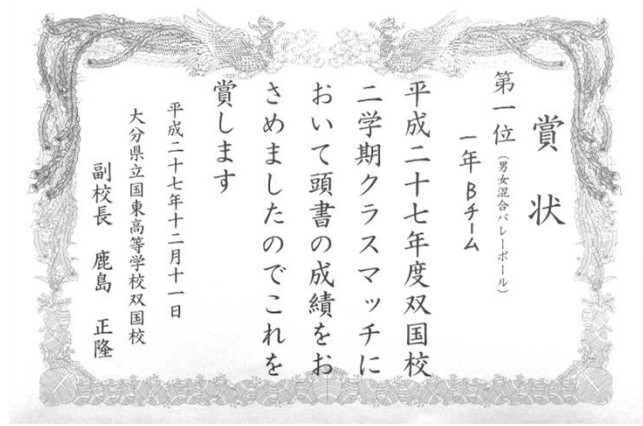 賞状
第一位(男女混合バレーボール)
一年Bチーム
平成二十七年度双国校
二学期クラスマッチに
おいて頭書の成績をお
さめましたのでこれを
賞します
平成二十七年十二月十一日
大分県立国東高等学校双国校
副校長 鹿島 正隆